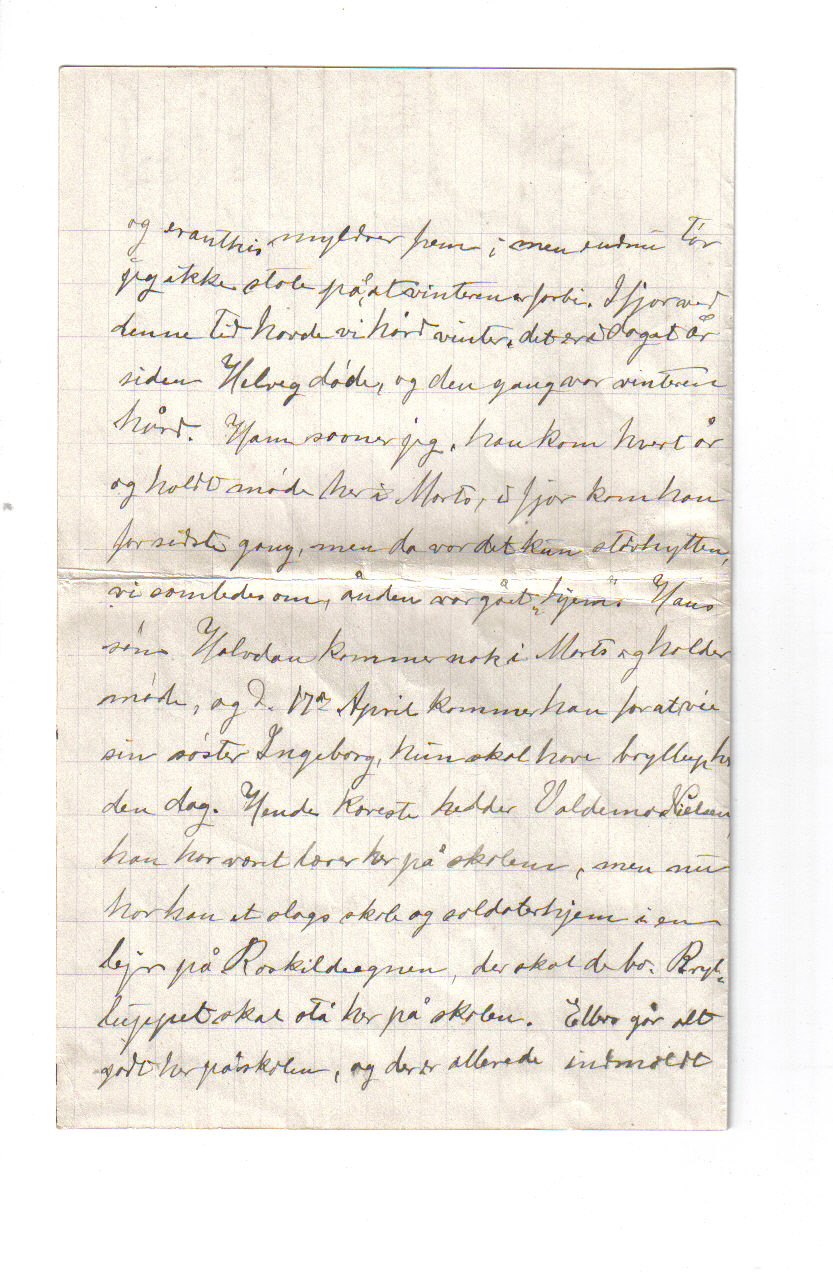 og eranthis myldrer frem; men endnu tør
jeg ikke stole på, at vinteren er forbi. Ifjor ved
denne tid havde vi hård vinter, det er i dag et år
siden Helveg døde, og den gang var vinteren
hård. Ham savner jeg, han kom hvert år
og holdt møde her i Marts, i fjor kom han
for sidste gang, men da var det kun støvhytten,
vi samledes om, ånden var gået „hjem“. Hans
søn Halvdan kommer nok i Marts og holder
møde, og d. 17de April kommer han for at vie
sin søster Ingeborg, hun skal have bryllup her
den dag. Hendes kæreste hedder Valdemar Nielsen,
han har været lærer her på skolen, men nu
har han et slags skole og soldaterhjem i en
lejr på Roskildeegnen, der skal de bo. Bryl-
luppet skal stå her på skolen. Ellers går alt
godt her på skolen, og der er allerede indmeldt